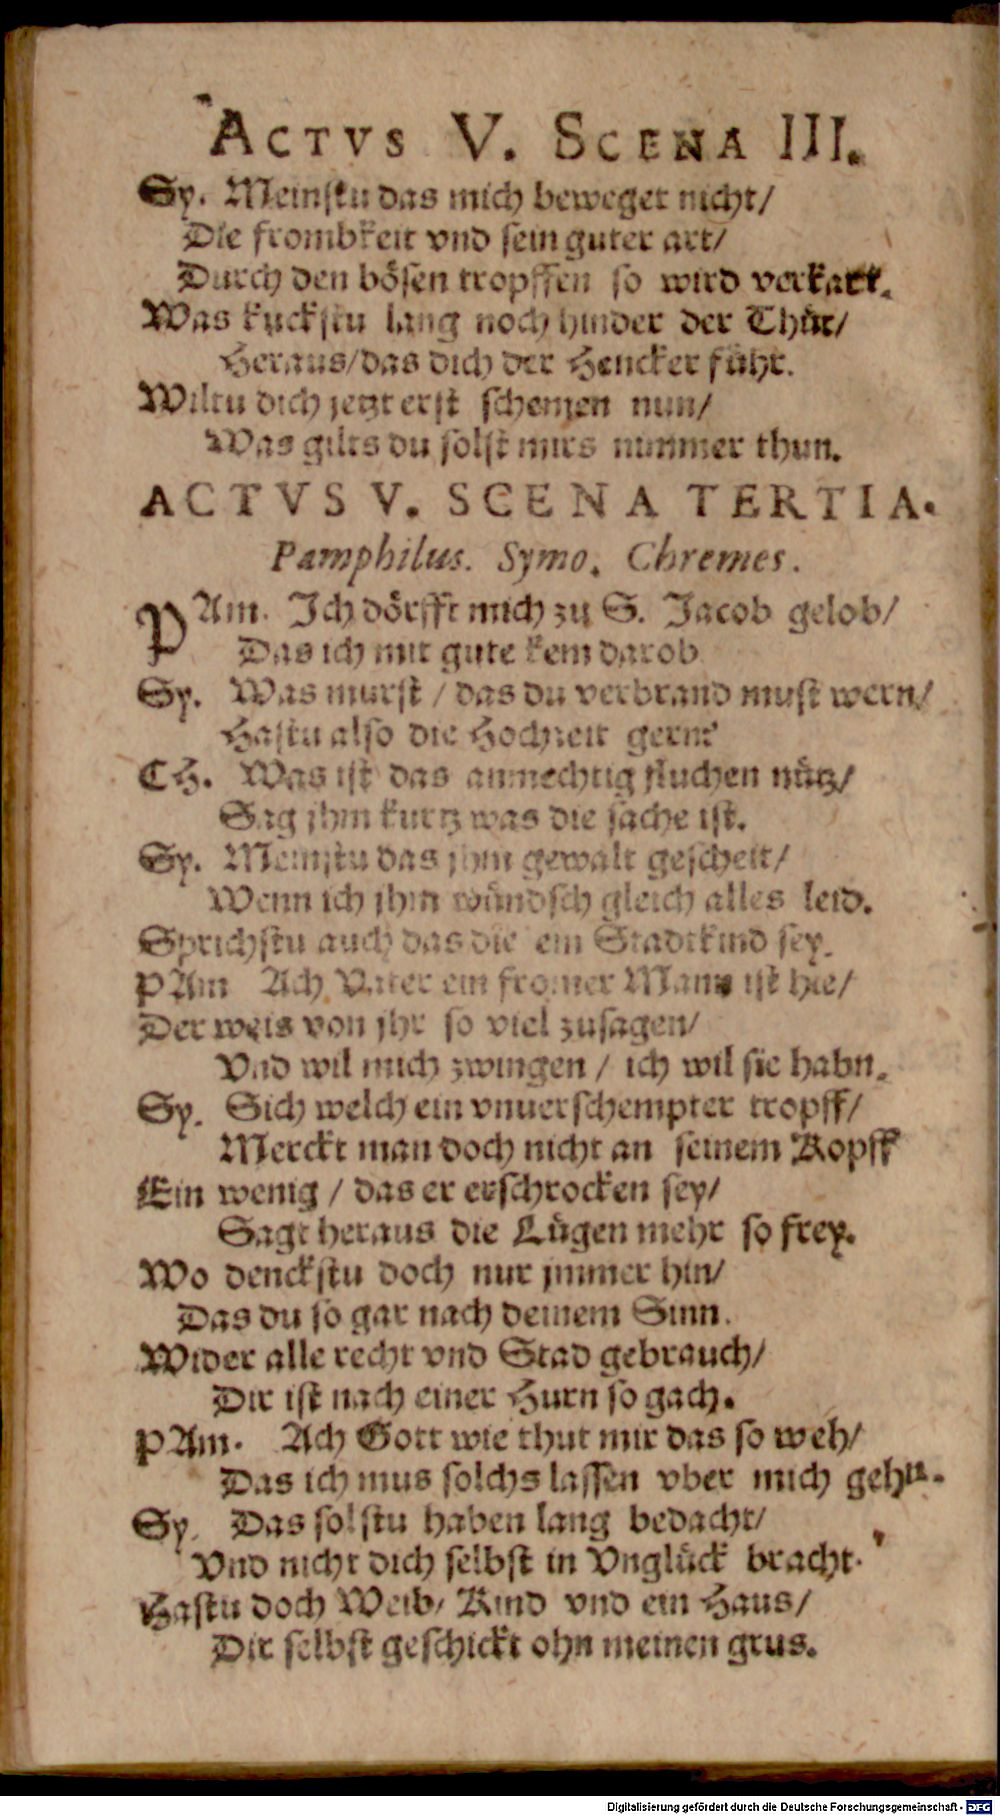 ACTVS V. SCENA III.
Sy. Meinstu das mich beweget nicht/
Die frombkeit vnd sein guter art/
Durch den bösen tropffen so wird verkart.
Was kuckstu lang noch hinder der Thür/
Heraus/das dich der Hencker führ.
Wiltu dich jetzt erst schemen nun/
Was gilts du solst mirs nimmer thun.
ACTVS V. SCENA TERTIA.
Pamphilus. Symo. Chremes.
PAm. Ich dörfft mich zu S. Jacob gelob/
Das ich mit gute kem darob
Sy. Was murst / das du verbrand must wern/
Hastu also die Hochzeit gern?
CH. Was ist das anmechtig fluchen nütz/
Sag jhm kurtz was die sache ist.
Sy. Meinstu das jhm gewalt gescheit/
Wenn ich jhm wündsch gleich alles leid.
Sprichstu auch das die ein Stadtkind sey.
PAm Ach Vater ein fromer Mann ist hie/
Der weis von jhr so viel zusagen/
Vnd wil mich zwingen / ich wil sie habn.
Sy. Sich welch ein vnuerschempter tropff/
Merckt man doch nicht an seinem Kopff
Ein wenig / das er erschrocken sey/
Sagt heraus die Lügen mehr so frey.
Wo denckstu doch nur jmmer hin/
Das du so gar nach deinem Sinn.
Wider alle recht vnd Stad gebrauch/
Dir ist nach einer Hurn so gach.
PAm. Ach Gott wie thut mir das so weh/
Das ich mus solchs lassen vber mich gehn.
Sy. Das solstu haben lang bedacht/
Vnd nicht dich selbst in Vnglück bracht.
Hastu doch Weib/ Kind vnd ein Haus/
Dir selbst geschickt ohn meinen grus.
Digitalisierung gefördert durch die Deutsche Forschungsgemeinschaft - DFG